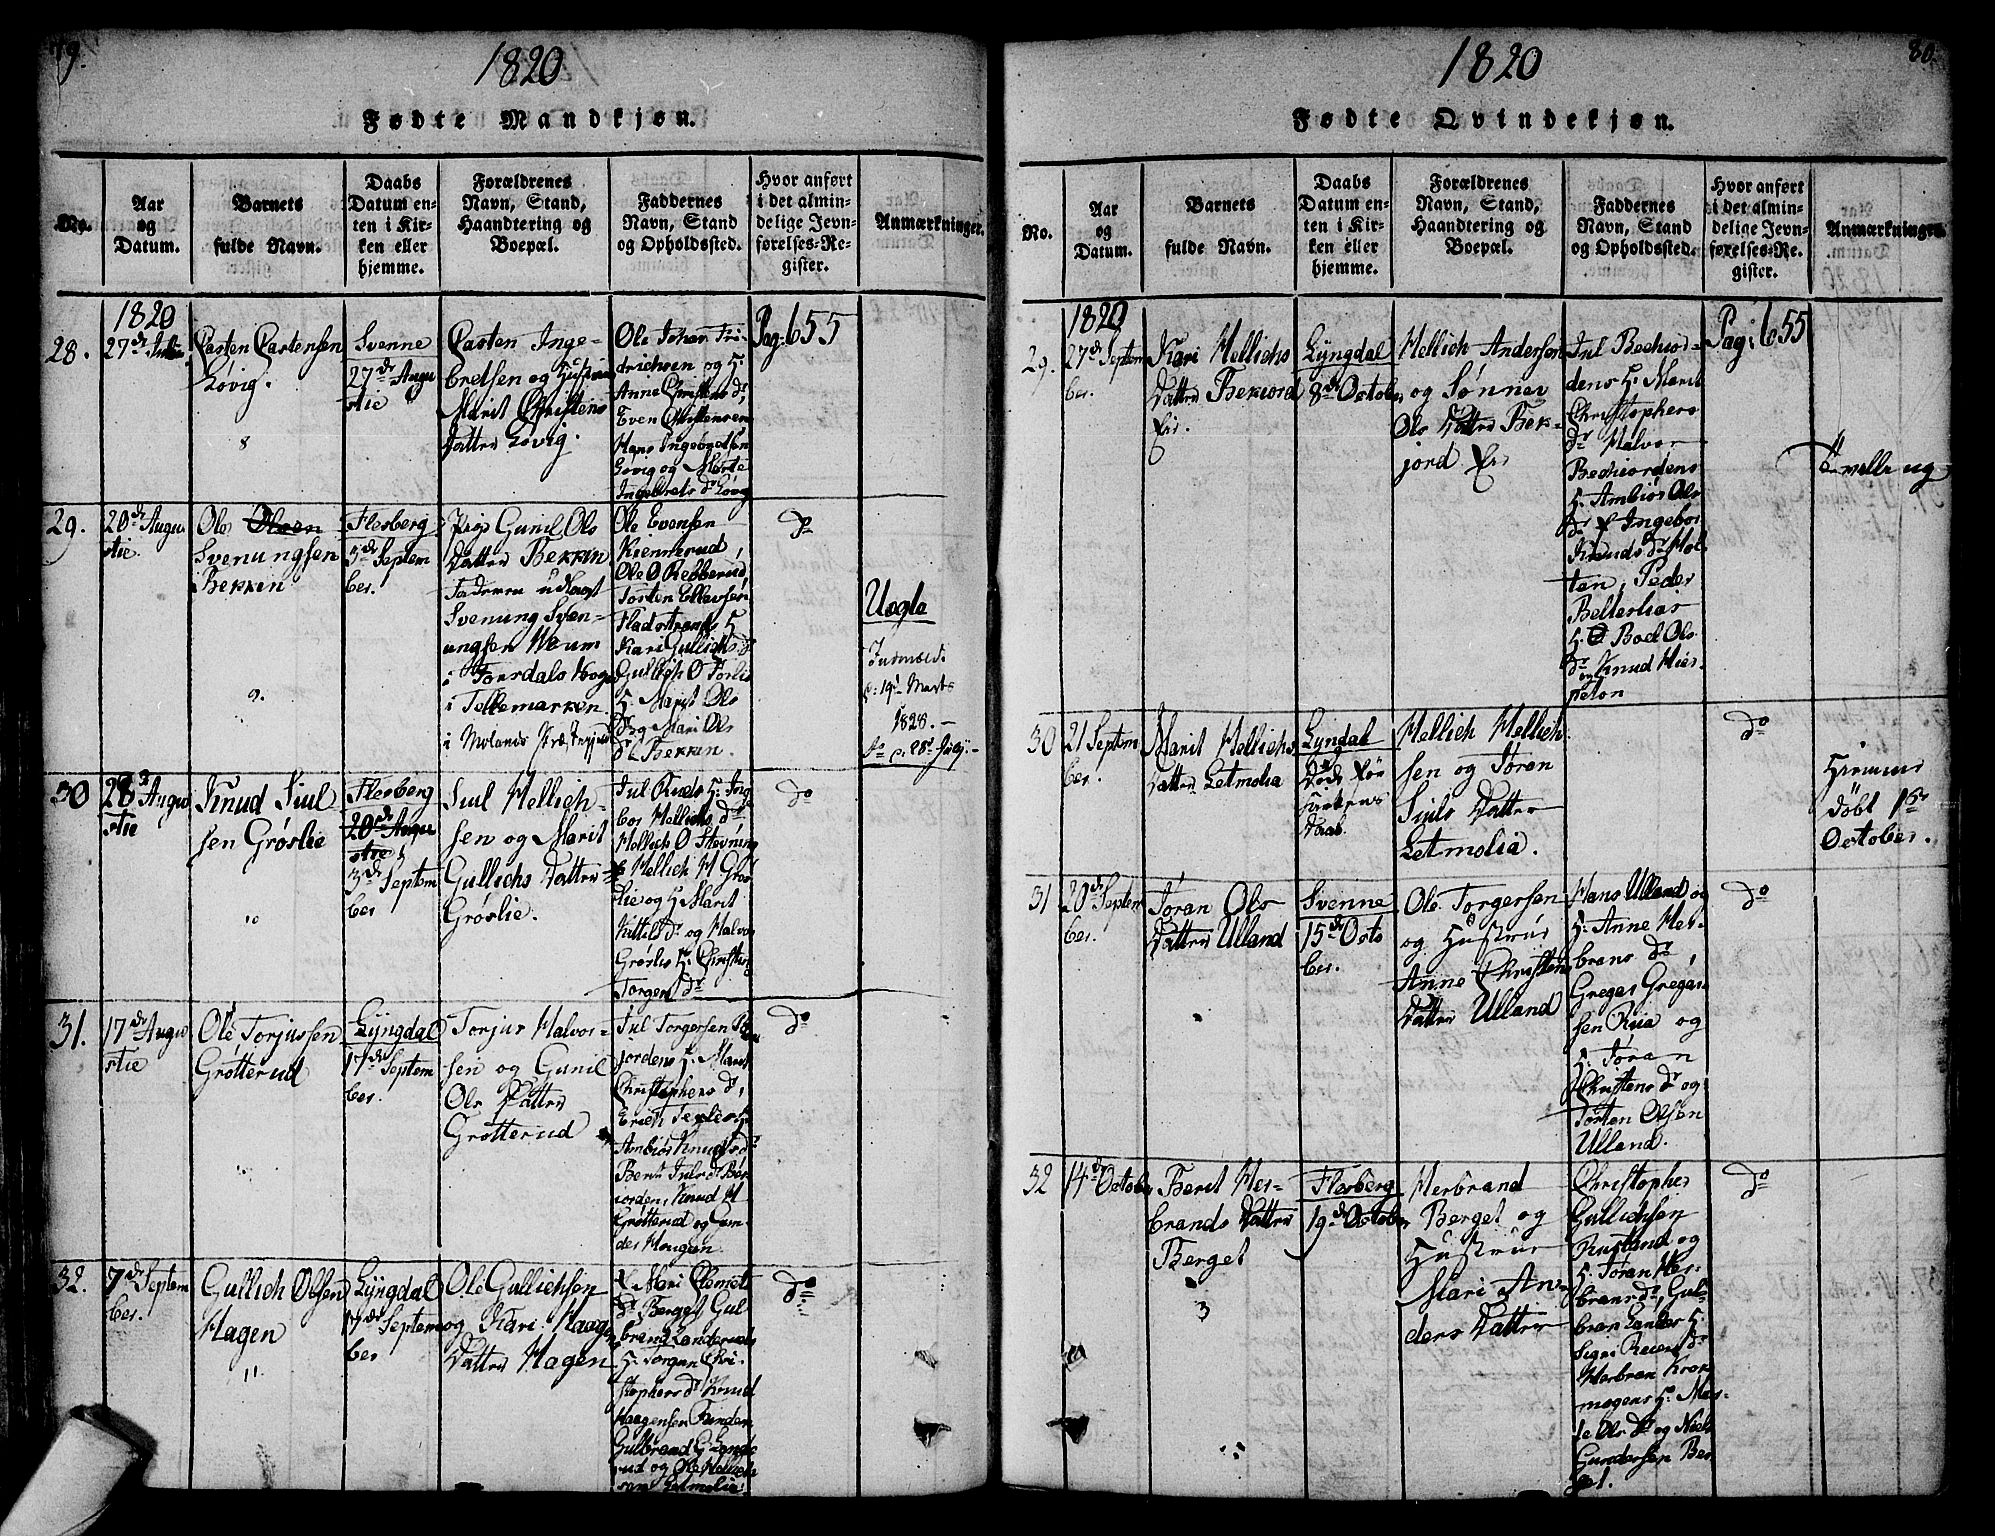 79.
1820
Fødte Mandkjøn.
No.
Aar
og
Datum.
Barnets
fulde Navn.
Daabs
Datum en-
ten i Kir-
ken eller
hjemme.
Forældrenes
Navn, Stand,
Haandtering og
Boepæl.
Faddernes
Navn, Stand
og Opholdssted.
Hvor anført
i det almin-
delige Jevn-
førelses-Re-
gister.
Anmærkninger.
28.
1820
27de Julie
Carsten Carstensen
Løvig.
8
Svenne
27de Augu
stie
Carsten Inge-
bretsen og Hustrue
Marit Christens
Datter Løvig.
Ole Johan Fri-
drichsen og H.
Anne Christens dr,
Even Christensen
Hans Ingebretsen
Løvig og Marte
Ingebrets dr Løvig
Pag: 655
29.
20de Augu
stie.
Ole Olsen
Svenungsen
Bekken
9.
Flesberg
3de Septem
ber.
Pige Gunil Ols
Datter Bekken
Faderen udlagt
Svenung Sven-
ungsen Veum
i Foersdals Sogn
i Tellemarken
i Molands Præstegjeld
Ole Evensen
Kiennerud,
Ole O Rebberud
Torsten Ellevsen
Fladstrands H
Kari Gullichs dr
Gullich O Førlie
H. Margit Ols
dr og Mari Ols
dr Bekken.
do
Uægte
Indmeldt
p: 19de Marts
1828. –
do p. 28de July. –
30
28de Augu
stie
Knud Juul
sen Grøslie
10
Flesberg
20de Augu
stie
3de Septem
ber
Juul Hellich-
sen og Marit
Gullichs Datter
Grøslie.
Jul Ruels H. Inge
bor Hellichs dr
Hellich O Støvning
Hellich H Grøs
lie og H Marit
Kittils dr og Halvor
Grøslie H. Christi
Torgers dr
do
31.
17de Augu
stie
Ole Torjussen
Grøtterud
Lyngdal
17de Septem
ber.
Torjus Halvor-
sen og Gunil
Ols Datter
Grøtterud
Jul Torgersen Be
jordens H. Marit
Christophers dr,
Erich Texleo H.
Ambiør Knuds dr
Berit Juls dr Be
iorden, Knud H
Grøtterud og Gun
der Hougen
do
32.
7de Septem
ber.
Gullich Olsen
Hagen
11
Lyngdal
17de Septem
ber
Ole Gullichsen
og Kari Haagens
Datter Hagen
Mari Clemet
dr Berget Gul
brand Landeruds
H. Jorgun Chri-
stophers dr Knud
Haagensen
Gulbrand H Lande
rud og Ole Hellich
sen Letmolie.
do
80.
1820
Fødte Qvindekjøn.
No.
Aar
og
Datum.
Barnets
fulde Navn.
Daabs
Datum en-
ten i Kir-
ken eller
hjemme.
Forældrenes
Navn, Stand,
Haandtering og
Boepæl.
Faddernes
Navn, Stand
og Opholdssted.
Hvor anført
i det almin-
delige Jevn-
førelses-Re-
gister.
Anmærkninger
29.
1820
27de Septem
ber.
Kari Hellichs
Datter Bekiord
Eie.
Lyngdal
8de October
Hellich Andersen
og Sønnev
Ols Datter Bek-
jord Eie
Jul Bechior-
dens H. Marit
Christophers
dr Halvor
Bechiordens
H. Ambiør Ols
dr Ingebor
Knuds dr Hol
ten, Peder
Belterliae
H. Boel Ols
dr og Knud Hier
peton
Pag: 655
Tvilling
30
21 Septem
ber.
Marit Hellichs
Datter Letmolia
Lyngdal
Døde før
Kirkens
Daab.
Hellich Hellich
sen og Jøran
Juuls Datter
Letmolia.
do
Hiemme
døbt 1ste
October.
31
20de Septem
ber.
Jøran Ols
Datter Ulland
Svenne
15de Octo
ber.
Ole Torgersen
og Hustrue
Anne Christens
Datter Ulland
Hans Ulland og
H. Anne Her-
brans dr
Greger Greger
sen Ruia og
H. Jøran
Christens dr og
Torsten Olsen
Ulland.
do
32
14de October
Berit Her-
brands Datter
Berget
3
Flesberg
19de October
Herbrand
Berget og
Hustrue
Mari An-
ders Datter
Christopher
Gullichsen
Rustand og
H. Jøran Her-
brans dr, Gul-
bran Lander H.
Sigri Reiers dr
Herbran Krok
mogens H. Mar-
te Ols dr og Niels
Gundersen Ber
get.
do